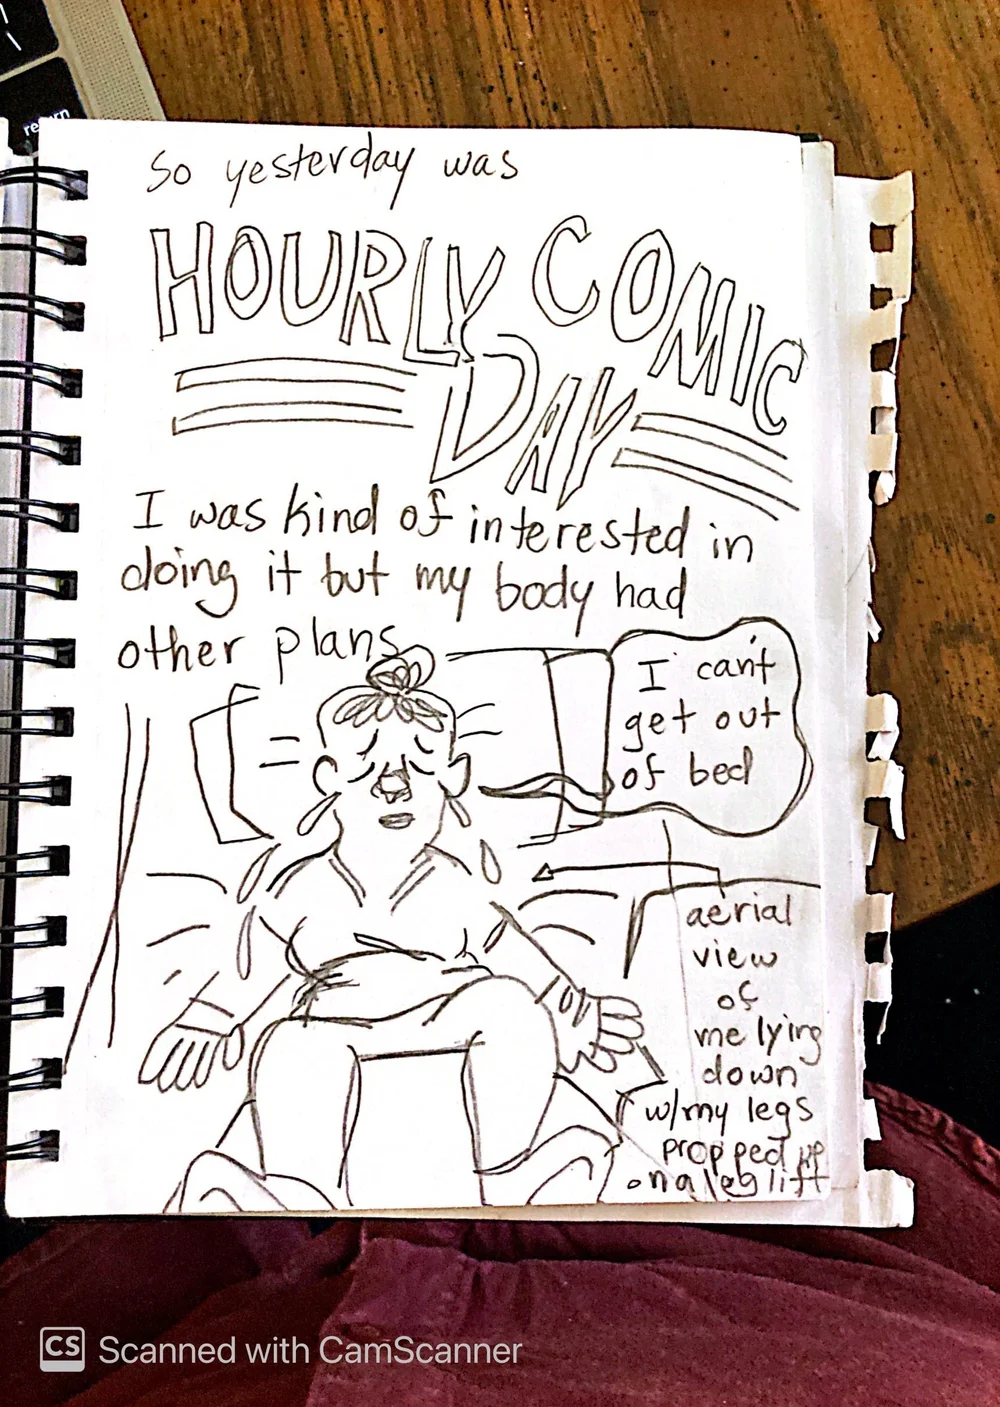 return
So yesterday was
HOURLY COMIC
DAY
I was kind of interested in
doing it but my body had
other plans
I can't
get out
of bed
aerial
view
of
me lying
down
w/my legs
propped up
on a leg lift
CS Scanned with CamScanner